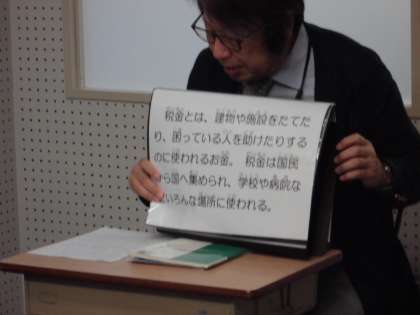 税金とは、建物や施設をたてた
り、困っている人を助けたりする
のに使われるお金。 税金は国民
から国へ集められ、学校や病院な
どいろんな場所に使われる。